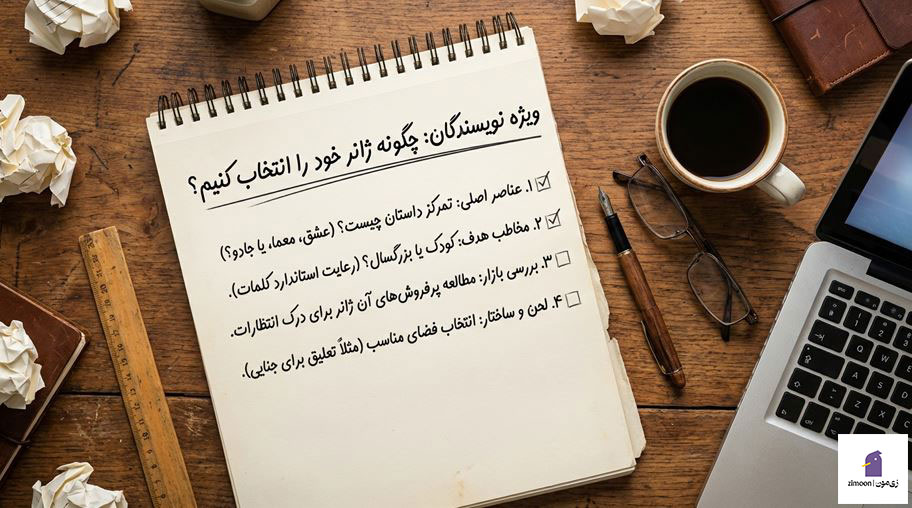 ویژه نویسندگان: چگونه ژانر خود را انتخاب کنیم؟
۱. عناصر اصلی: تمرکز داستان چیست؟ (عشق، معما، یا جادو؟)
۲. مخاطب هدف: کودک یا بزرگسال؟ (رعایت استاندارد کلمات).
۳. بررسی بازار: مطالعه پرفروش‌های آن ژانر برای درک انتظارات.
۴. لحن و ساختار: انتخاب فضای مناسب (مثلاً تعلیق برای جنایی).
zimoon | زی‌مون